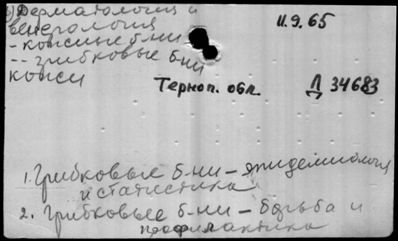 Дерматология и
венерология
- кожные б-ни
-- грибковые б-ни
кожи
II.9.65
Терноп. обл.
Д 34683
1. Грибковые б-ни - эпидемиология
и статистика
2. Грибковые б-ни - борьба и
профилактика